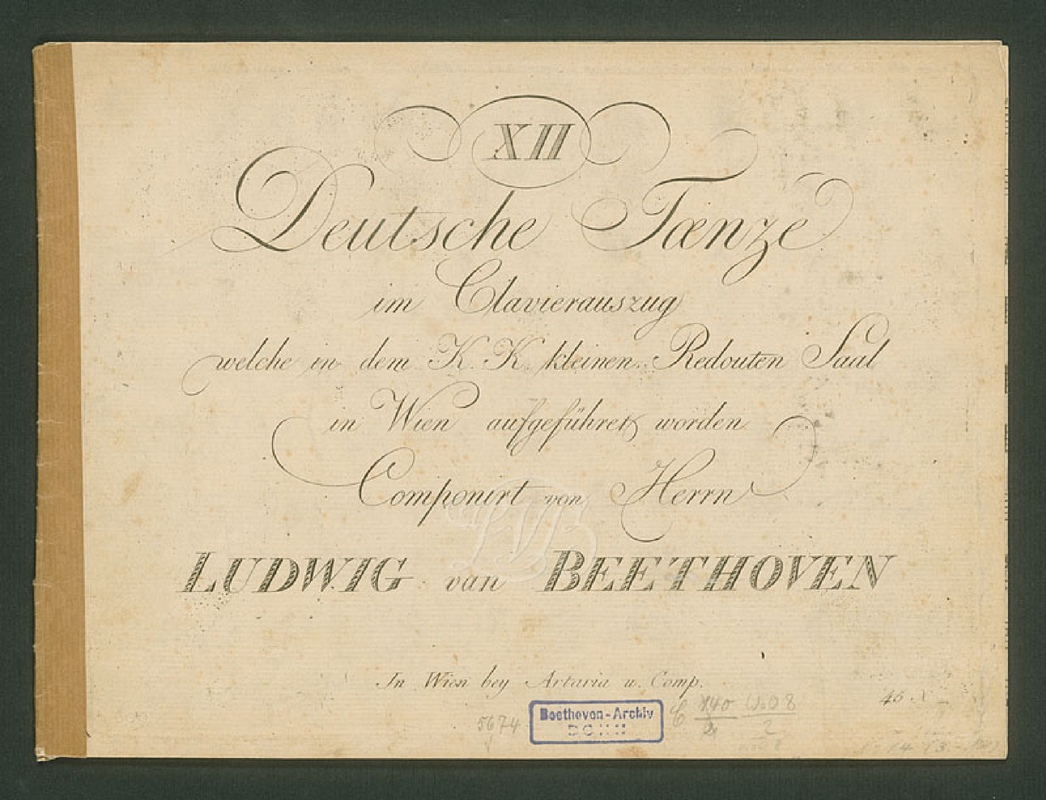 XII
Deutsche Tænze
im Clavierauszug
welche in dem K. K. kleinen Redouten Saal
in Wien aufgeführet worden
Componirt von Herrn
LUDWIG van BEETHOVEN
In Wien bey Artaria u. Comp.
45 x
Beethoven-Archiv
BONN
5674